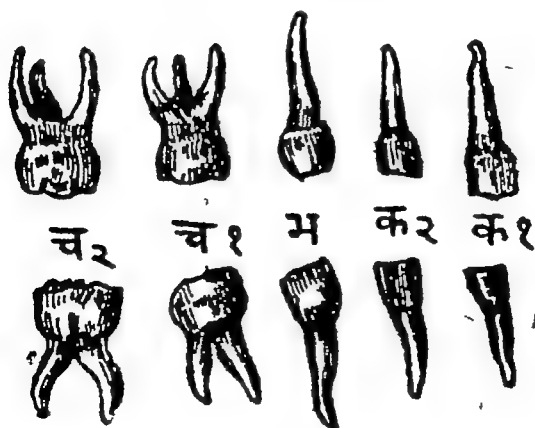 च२ च१ भ क२ क१